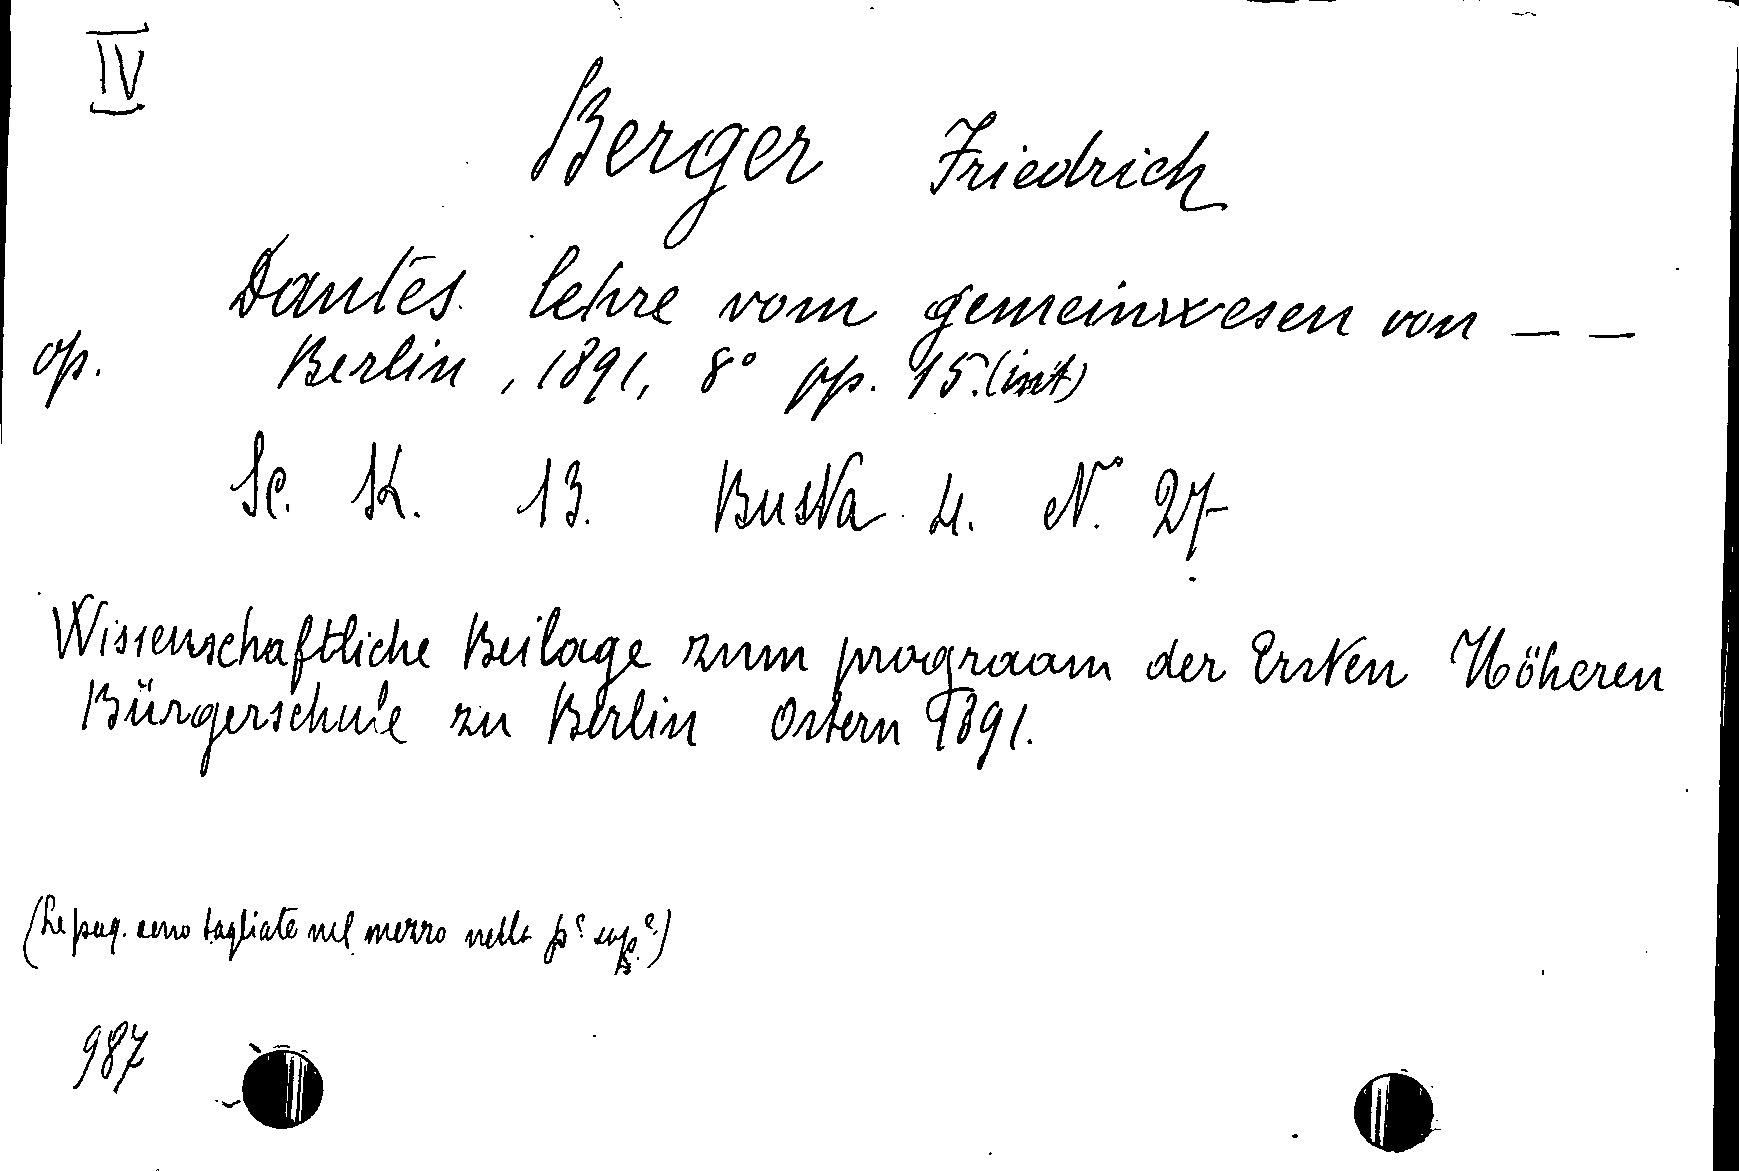 IV
Berger Friedrich
Dantes lehre vom gemeinwesen von _ _
op. Berlin, 1891, 8° pp. 15. (int)
Sc. K. 13. Busta 4. N° 27
Wissenschaftliche Beilage zum prograam der Ersten Höheren
Bürgerschule zu Berlin Ostern 1891.
(Le pag. sono tagliate nel mezzo nella pe supe)
987